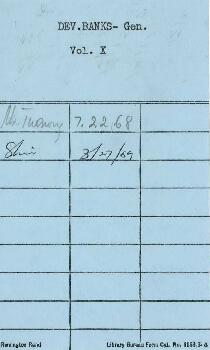 DEV.BANKS- Gen.
Vol. X
7.22.68
3/27/69
Remington Rand Library Bureau Form Cat. No. 1153.3-8